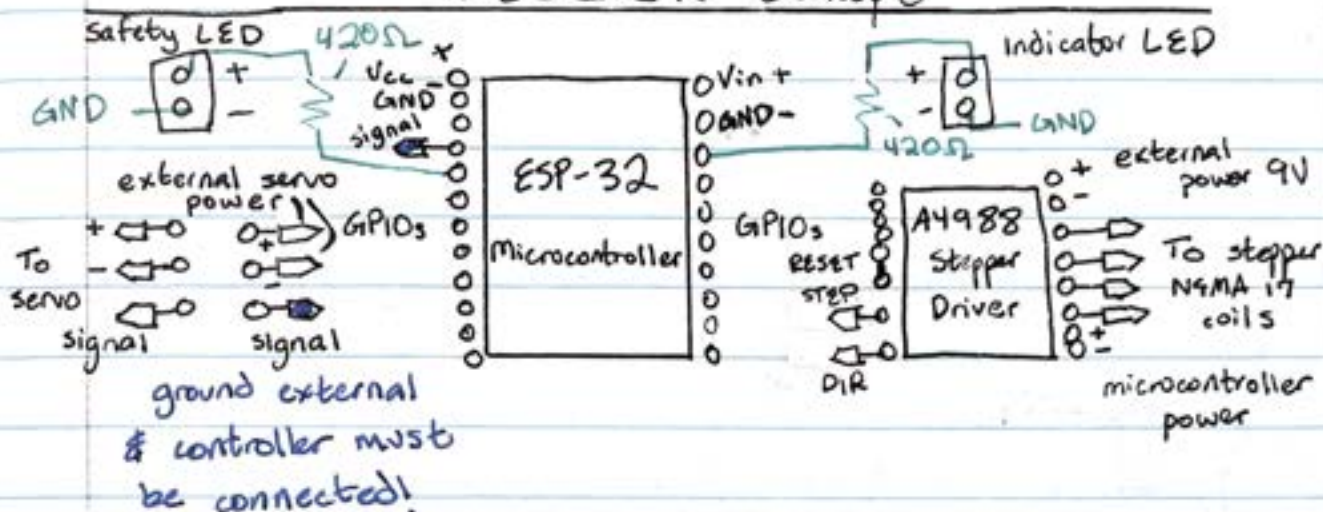 Safety LED
420Ω
+
-
GND
Vcc
GND
signal
external servo
power
GPIOs
+
-
To
servo
signal
+
-
signal
ground external
& controller must
be connected!
ESP-32
Microcontroller
Vin +
GND -
Indicator LED
+
-
GND
420Ω
external
power 9V
+
-
GPIOs
RESET
STEP
DIR
A4988
Stepper
Driver
To stepper
NEMA 17
coils
+
-
microcontroller
power